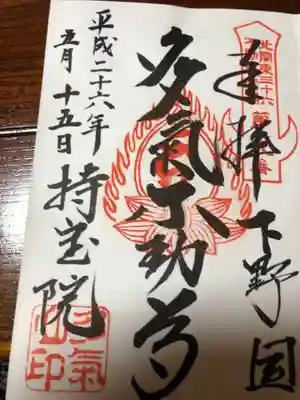 奉拝 下野国
多氣不動尊
平成二十六年
五月 十五日 持宝院
北関東三十六
多氣山印